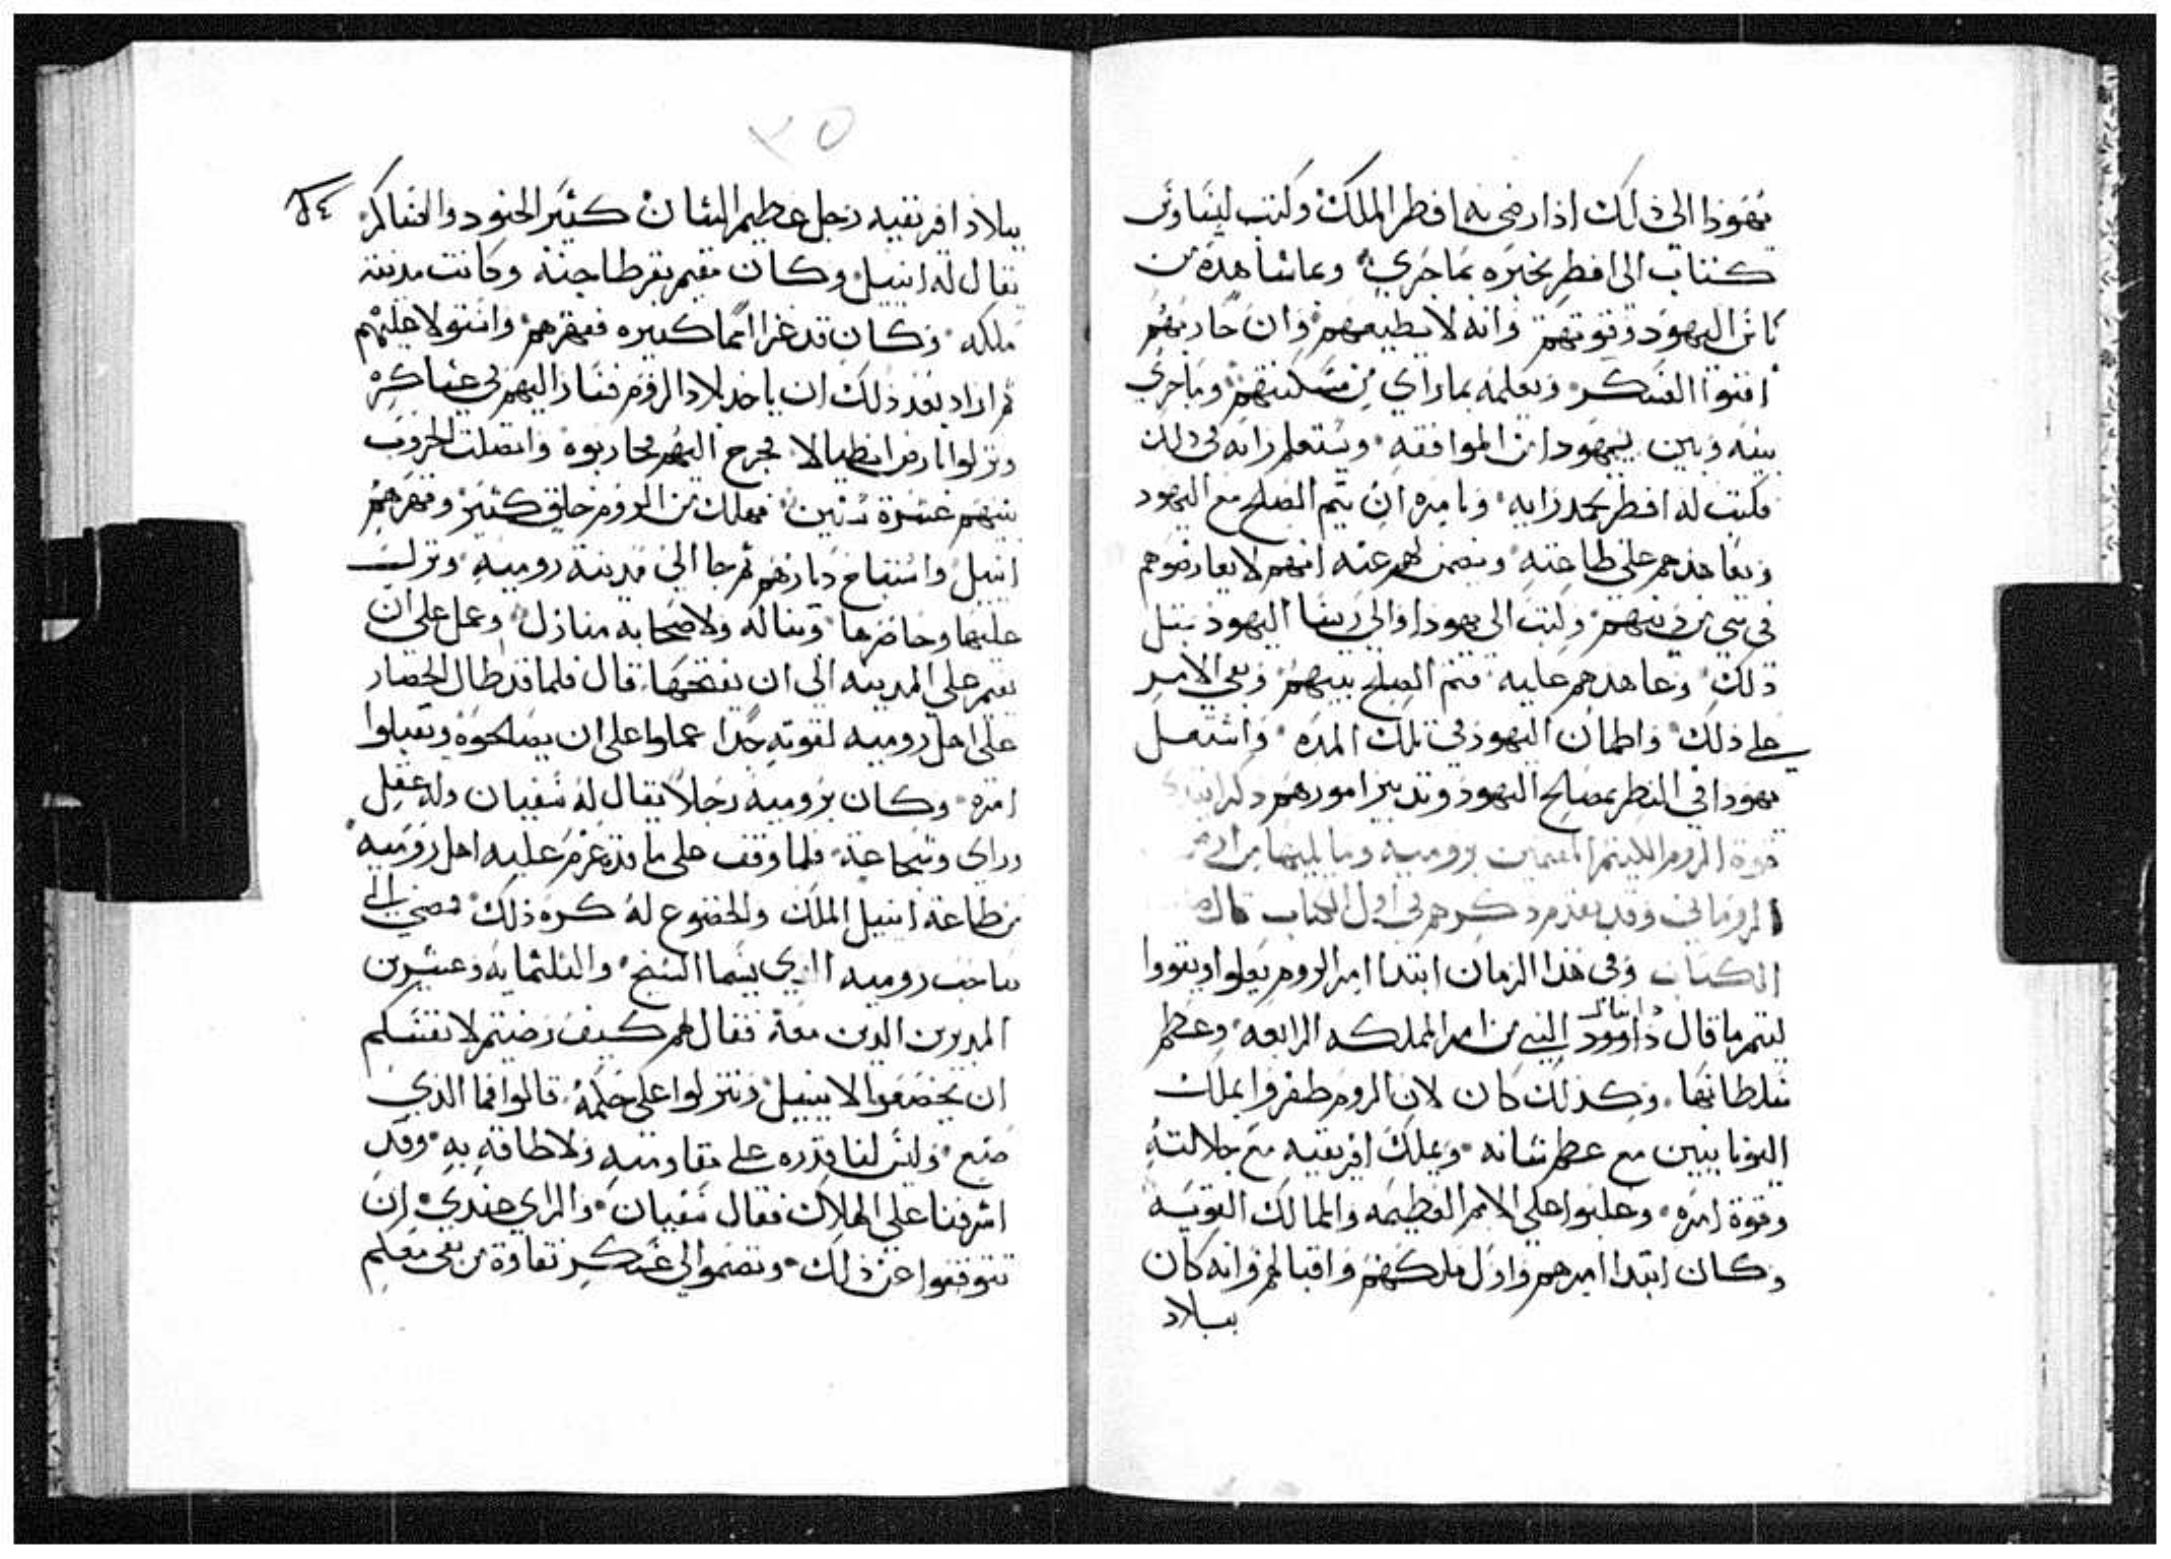 يهوذا الى ذلك اذا رضي به افطر الملك وكتب ليساوس
كتاب الى افطر يخبره بما جرى وما شاهده من
باس اليهود وقوتهم وانه لا يطيعهم وان حاربهم
افنوا العسكر ويعلمه بما راى من مسكنتهم وما جرى
بينه وبين يهودا من الموافقه ويستعلم رايه في ذلك
فكتب له افطر يحمد رايه ويامره ان يتم الصلح مع اليهود
ويعاهدهم على طاعته ويضمن لهم عنه انهم لا يعارضوهم
في شي من دينهم وكتب الى يهودا والى ريسا اليهود بمثل
ذلك وعاهدهم عليه فتم الصلح بينهم وبقي الامر
على ذلك واطمان اليهود في تلك المده واشتغل
يهودا في النظر بمصالح اليهود وتدبير امورهم ذكر ابتدى
قوة الروم المقيمين برومية وما يليها من ارض
الروماني وقد تقدم ذكرهم في اول الكتاب قال
الكتاب وفي هذا الزمان ابتدا امر الروم يعلوا ويقووا
دانيال
ليتم ما قال داوود النبي من امر المملكه الرابعه وعظم
سلطانها وكذلك كان لان الروم ظفروا بملك
اليونانيين مع عظم شانه وبملك افريقيه مع جلالته
وقوة امره وغلبوا على الامم العظيمه والممالك القويه
وكان ابتدا امرهم واول ملكهم واقبالهم وانه كان
ببلاد
٢٥
٢٤
ببلاد افريقيه رجل عظيم الشان كثير الجنود والعساكر
يقال له انبيل وكان مقيم بقرطاجنه وكانت مدينة
ملكه وكان قد غزا امما كبيره فقهرهم واستولا عليهم
ثم اراد بعد ذلك ان ياخذ بلاد الروم فسار اليهم في عساكره
ونزلوا بارض انطيالا فخرج اليهم فحاربوه واتصلت الحروب
بينهم عشرة سنين فهلك من الروم خلق كثير وقهرهم
انبيل واستباح ديارهم ثم جا الى مدينة رومية ونزل
عليها وحاصرها وبنا له ولاصحابه منازل وعمل على ان
يقيم على المدينه الى ان يفتحها قال فلما قد طال الحصار
على اهل روميه لقوته جدا عملوا على ان يصالحوه ويقبلوا
امره وكان برومية رجلا يقال له شفيان وله عقل
وراي وشجاعة فلما وقف على ما قد عزم عليه اهل روميه
من طاعة انبيل الملك والخضوع له كره ذلك فمضى الى
صاحب روميه الذي يسما الشيخ والثلثمايه وعشرين
المدبرين الذين معه فقال لهم كيف رضيتم لانفسكم
ان يخضعوا لانبيل وتنزلوا على حكمه قالوا فما الذي
نصنع وليس لنا قدره على مقاومته ولا طاقه به وقد
اشرفنا على الهلاك فقال شفيان والراي عندي ان
تتوقفوا عن ذلك وتضموا الي عسكر نقاوة من بقي معكم